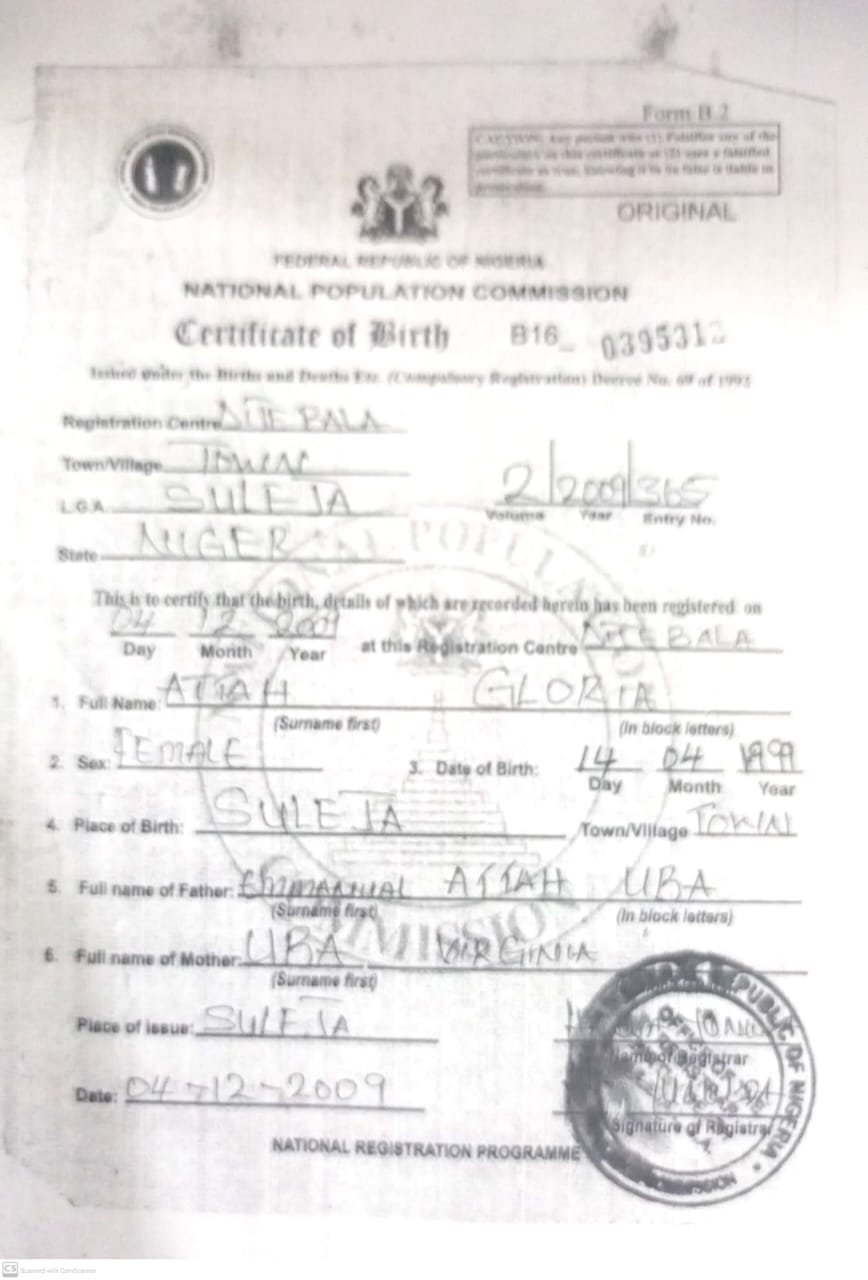 Form B.2
CAUTION: Any person who (1) Falsifies any of the
particulars on this certificate or (2) uses a falsified
certificate as true, knowing it to be false is liable to
prosecution.
ORIGINAL
FEDERAL REPUBLIC OF NIGERIA
NATIONAL POPULATION COMMISSION
Certificate of Birth B16_ 039531
Issued under the Births and Deaths Etc. (Compulsory Registration) Decree No. 69 of 1992
Registration Centre BALA
Town/Village TOWN
L.G.A. SULEJA 2/2009/365
Volume Year Entry No.
State NIGER
This is to certify that the birth, details of which are recorded herein has been registered on
04 12 2009 at this Registration Centre BALA
Day Month Year
1. Full Name: ATTAH GLORIA
(Surname first) (In block letters)
2. Sex: FEMALE 3. Date of Birth: 14 04 1999
Day Month Year
4. Place of Birth: SULEJA Town/Village TOWN
5. Full name of Father: EMMANUAL ATTAH UBA
(Surname first) (In block letters)
6. Full name of Mother: UBA VIRGINIA
(Surname first)
Place of issue: SULEJA
Name of Registrar
Date: 04-12-2009
Signature of Registrar
NATIONAL REGISTRATION PROGRAMME
REPUBLIC OF NIGERIA
CS Scanned with CamScanner